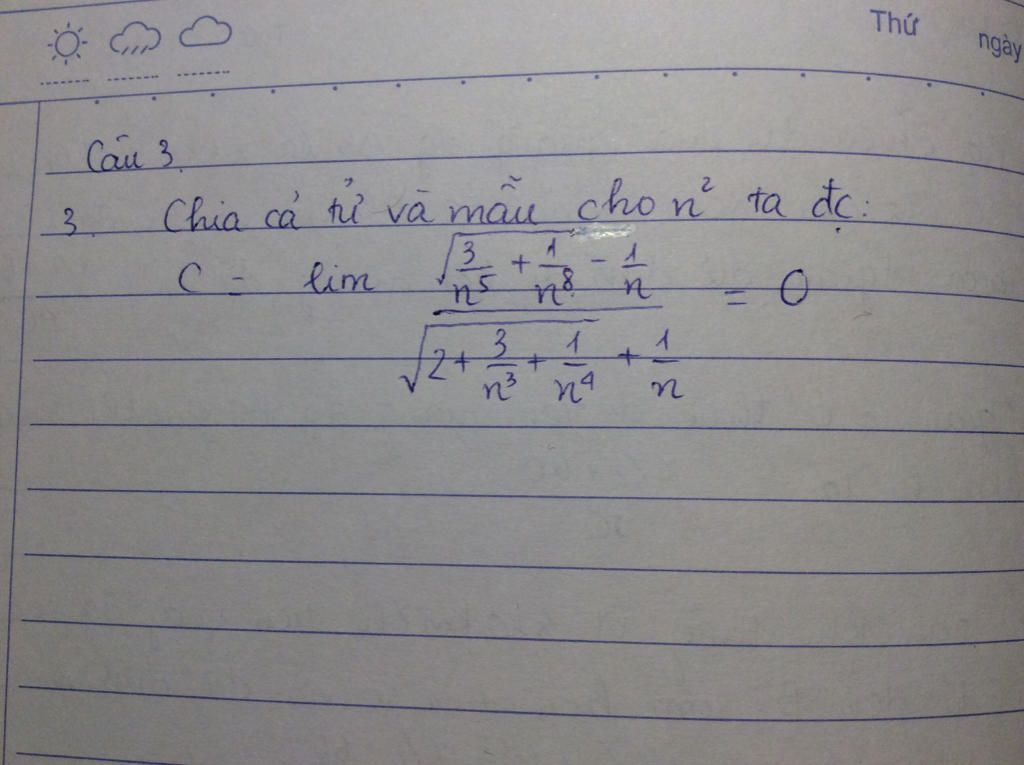 Thứ
ngày
Câu 3.
3. Chia cả tử và mẫu cho n² ta đc:
C = lim (√(3/n⁵ + 1/n⁸) - 1/n) / (√(2 + 3/n³ + 1/n⁴) + 1/n) = 0